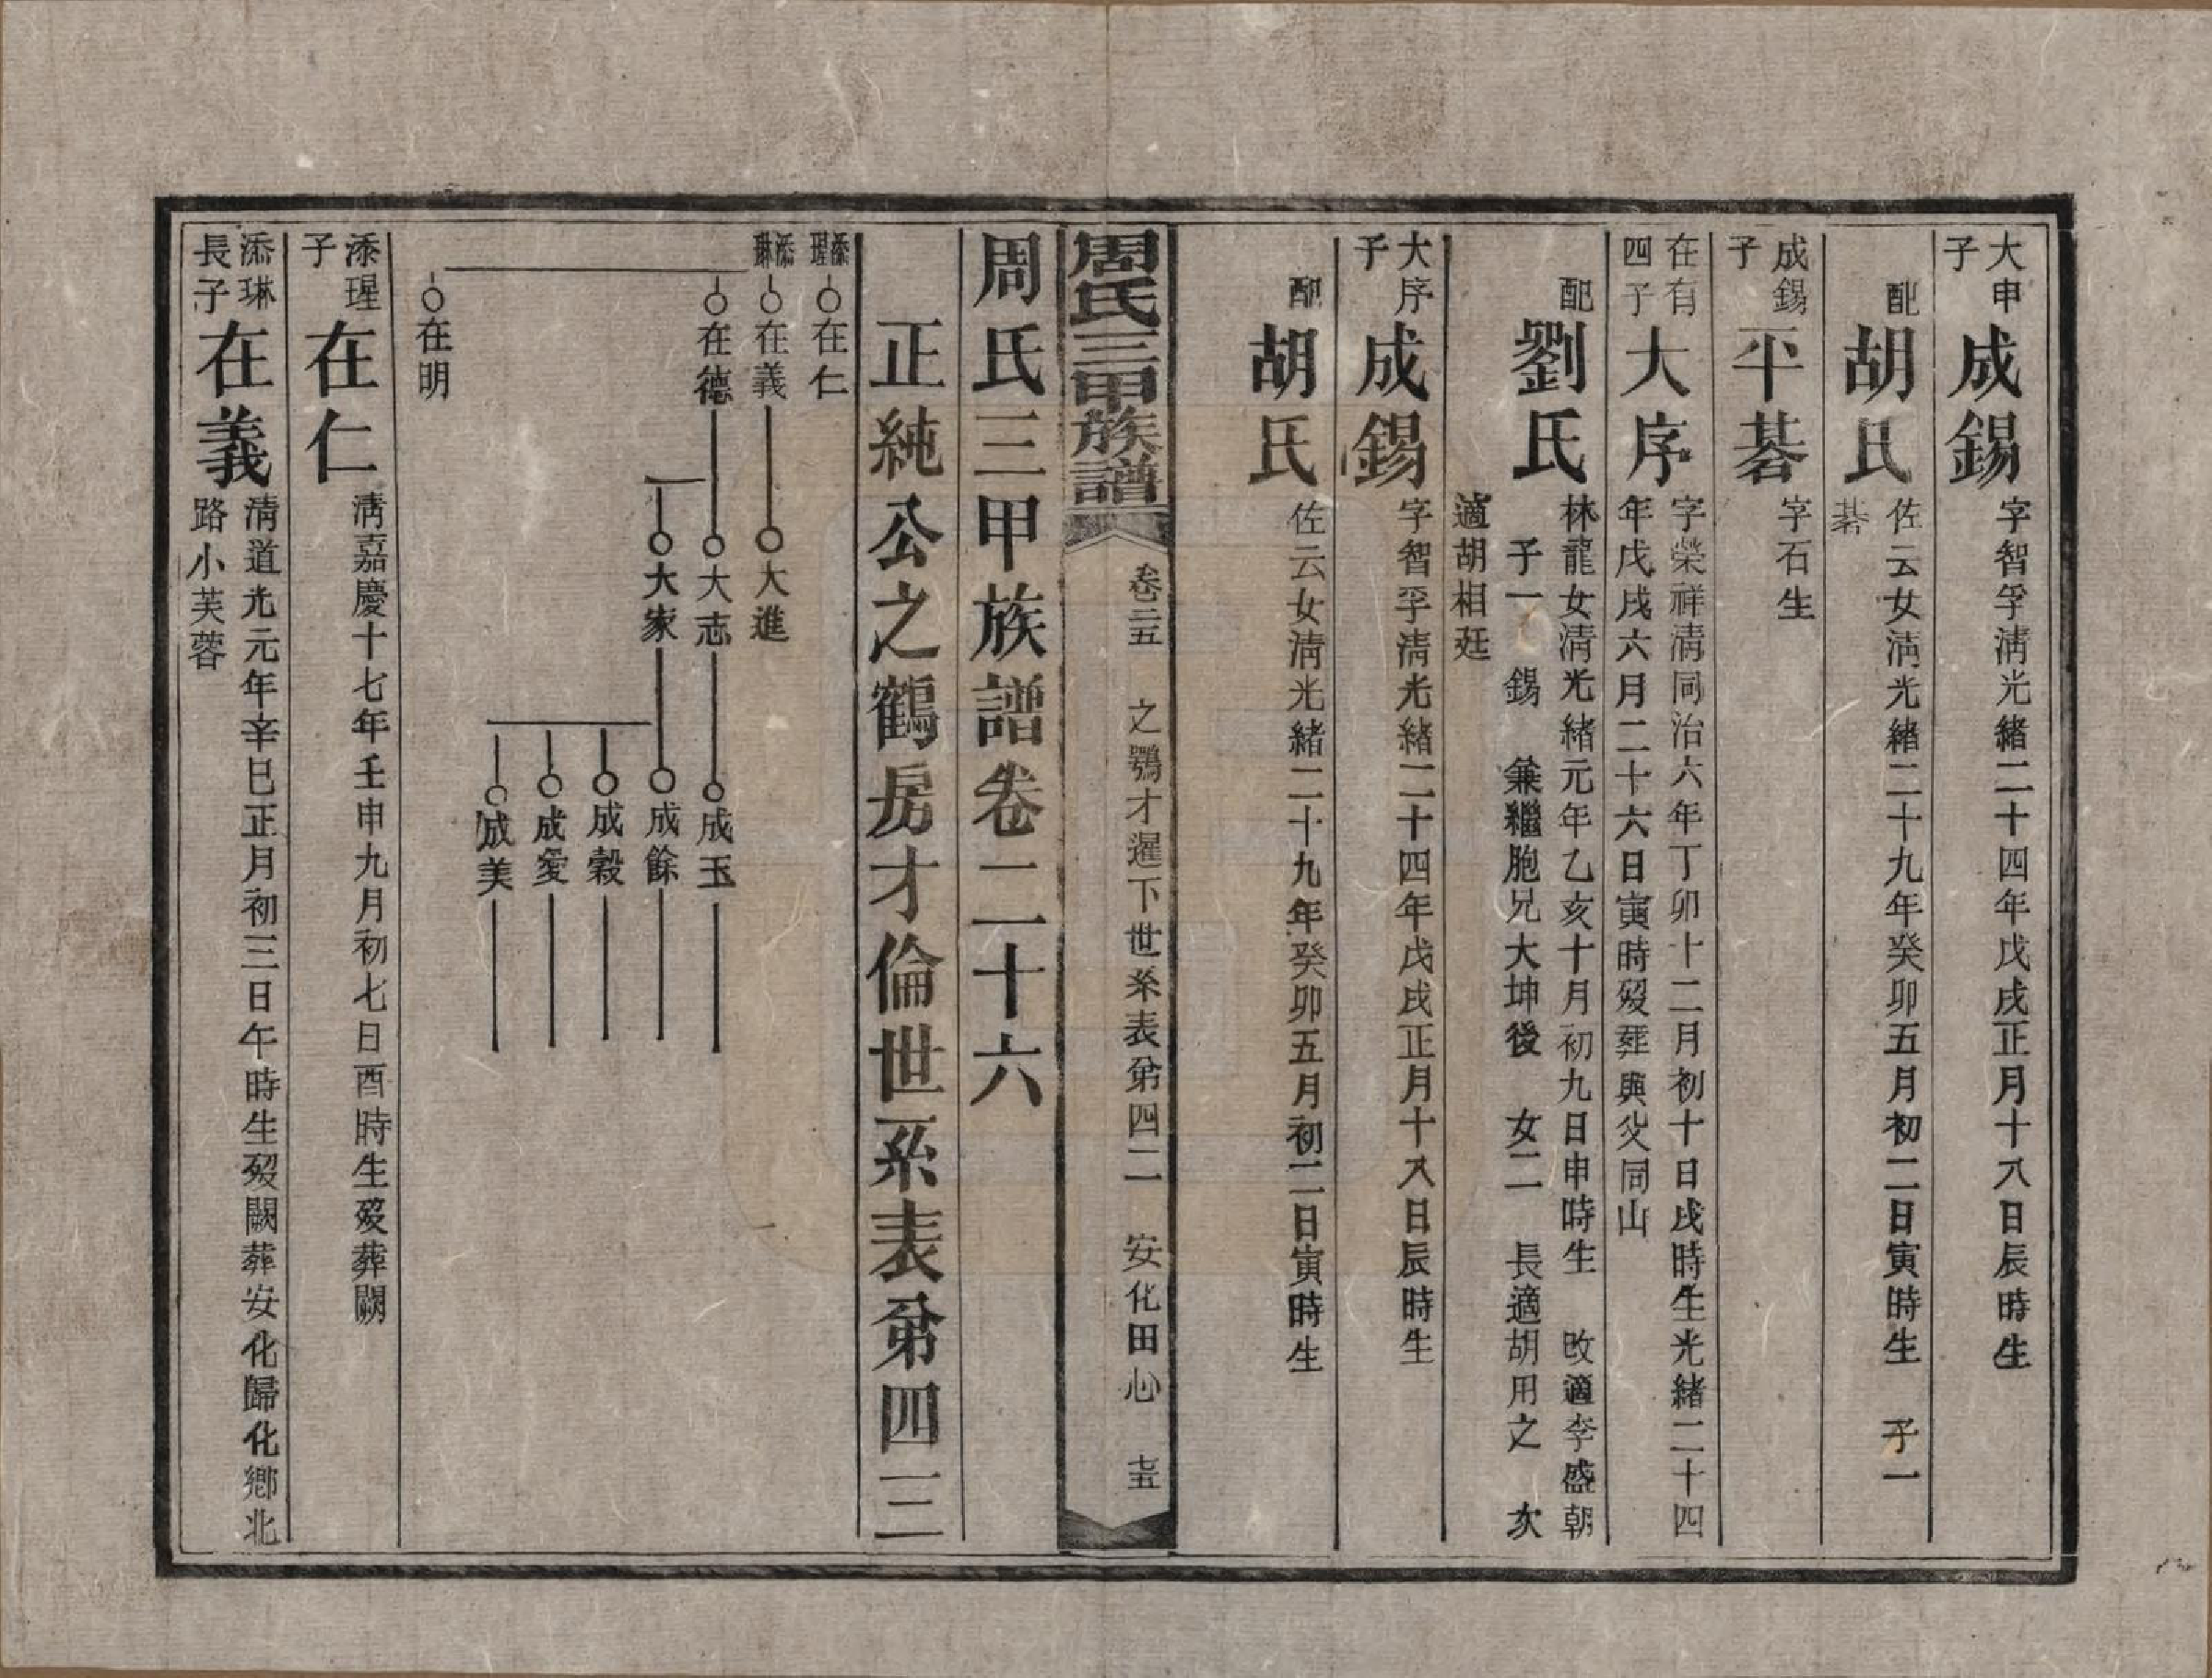 大申
子
成錫
字智孚清光緒二十四年戊戌正月十八日辰時生
配
胡氏
佐云女清光緒二十九年癸卯五月初二日寅時生 子一
碁
成錫
子
平碁
字石生
在有
四子
大序
字榮祥清同治六年丁卯十二月初十日戌時生光緒二十四
年戊戌六月二十六日寅時歿葬與父同山
配
劉氏
林龍女清光緒元年乙亥十月初九日申時生 改適李盛朝
子一 錫 兼繼胞兄大坤後 女二 長適胡用之 次
適胡相廷
大序
子
成錫
字智孚清光緒二十四年戊戌正月十八日辰時生
配
胡氏
佐云女清光緒二十九年癸卯五月初二日寅時生
周氏三甲族譜 卷二五 之鶚才暹下世系表第四二 安化田心 七五
周氏三甲族譜卷二十六
正純公之鶴房才倫世系表第四三
添瑆
在仁
添琳
在義
大進
在德
大志
成玉
大家
成餘
成穀
成愛
成美
在明
添瑆
子
在仁
清嘉慶十七年壬申九月初七日酉時生歿葬闕
添琳
長子
在義
清道光元年辛巳正月初三日午時生歿闕葬安化歸化鄉北
路小芙蓉